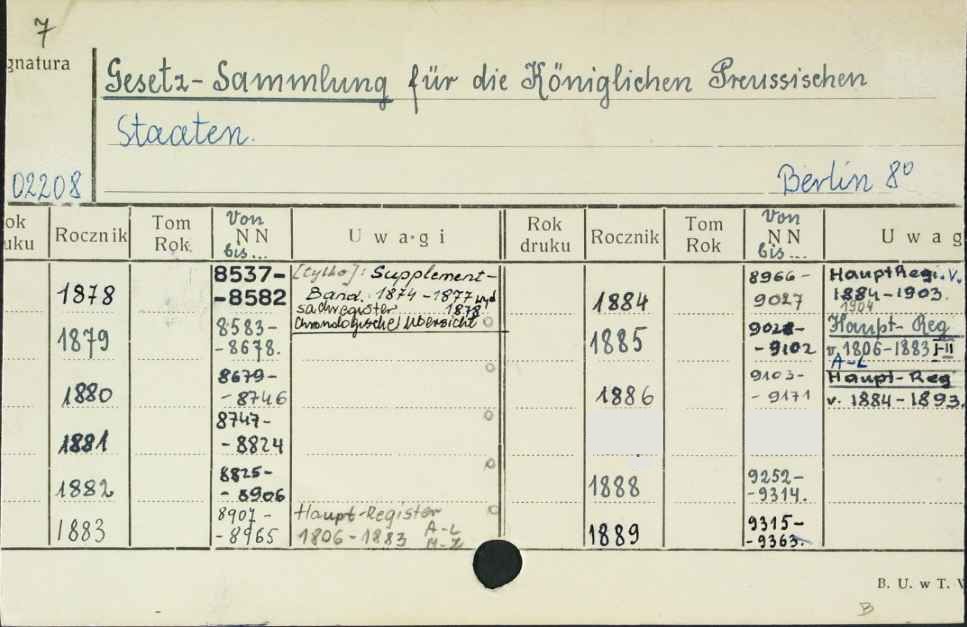 7
gnatura
Gesetz-Sammlung für die Königlichen Preussischen
Staaten.
02208
Berlin 8°
ok
uku
Rocznik
Tom
Rok
Von
NN
bis...
Uwagi
Rok
druku
Rocznik
Tom
Rok
Von
NN
bis...
Uwag
1878
8537-
-8582
[tylko]: Supplement-
Band. 1874-1877 wyd
sachregister 1878
Chronologische Übersicht
1879
8583-
-8678.
1880
8679-
-8746
1881
8747-
-8824
1882
8825-
-8906
1883
8907-
-8965
Haupt-Register
1806-1883 A-L
M-Z
1884
8966-
9027
HauptRegi. v.
1884-1903.
1904
1885
9028-
-9102
Haupt-Reg
v. 1806-1883 I-II
A-L
1886
9103-
-9171
Haupt-Reg
v. 1884-1893.
1888
9252-
-9314.
1889
9315-
-9363.
B. U. w T.
B